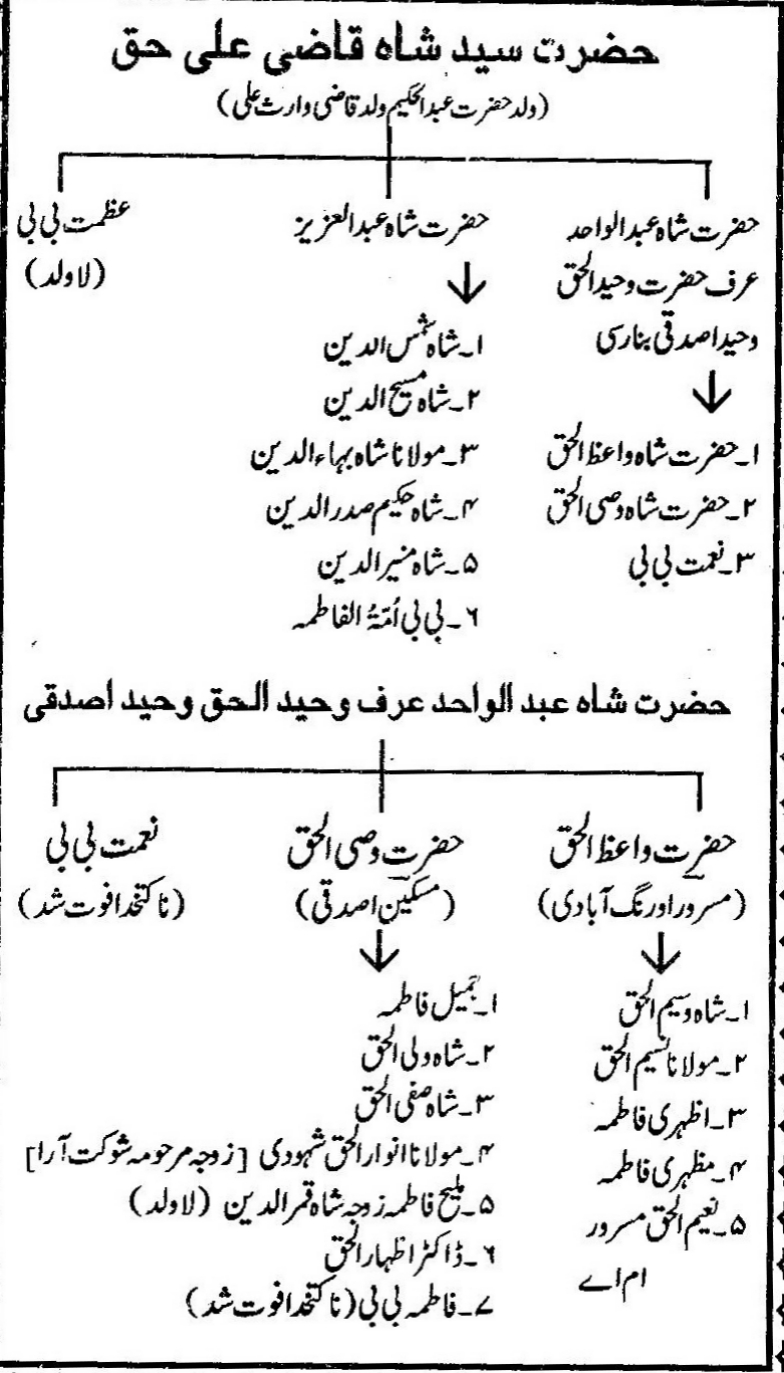 حضرت سید شاہ قاضی علی حق
(ولد حضرت عبدالحکیم ولد قاضی وارث علی)
حضرت شاہ عبدالواحد
عرف حضرت وحیدالحق
وحید اصدقی بنارسی
۱۔حضرت شاہ واعظ الحق
۲۔حضرت شاہ وصی الحق
۳۔نعمت بی بی
حضرت شاہ عبدالعزیز
۱۔شاہ شمس الدین
۲۔شاہ مسیح الدین
۳۔مولانا شاہ بہاءالدین
۴۔شاہ حکیم صدرالدین
۵۔شاہ منیرالدین
۶۔بی بی اُمّۃُ الفاطمہ
عظمت بی بی
(لاولد)
حضرت شاہ عبد الواحد عرف وحید الحق وحید اصدقی
حضرت واعظ الحق
(مسرور اورنگ آبادی)
۱۔شاہ وسیم الحق
۲۔مولانا نسیم الحق
۳۔اظہری فاطمہ
۴۔مظہری فاطمہ
۵۔نعیم الحق مسرور
ام اے
حضرت وصی الحق
(مسکین اصدقی)
۱۔جمیل فاطمہ
۲۔شاہ ولی الحق
۳۔شاہ صفی الحق
۴۔مولانا انوارالحق شہودی [زوجہ مرحومہ شوکت آرا]
۵۔ملیح فاطمہ زوجہ شاہ قمرالدین (لاولد)
۶۔ڈاکٹر اظہارالحق
۷۔فاطمہ بی بی (ناکتخدا فوت شد)
نعمت بی بی
(ناکتخدا فوت شد)